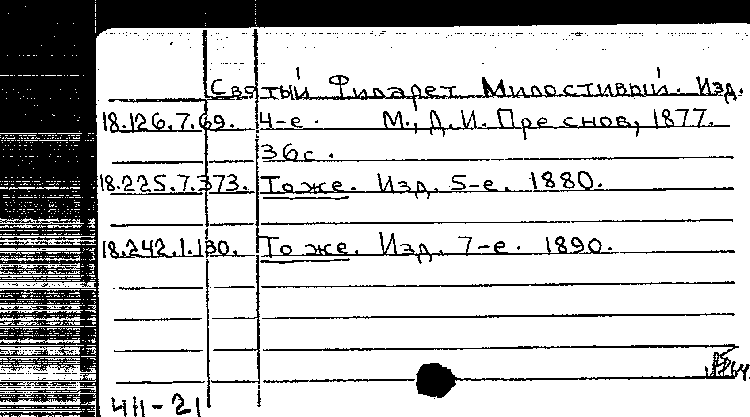 Святый Филарет Милостивый. Изд.
18.126.7.69. 4-е. М., Д.И. Преснов, 1877.
36с.
18.225.7.373. То же. Изд. 5-е. 1880.
18.242.1.130. То же. Изд. 7-е. 1890.